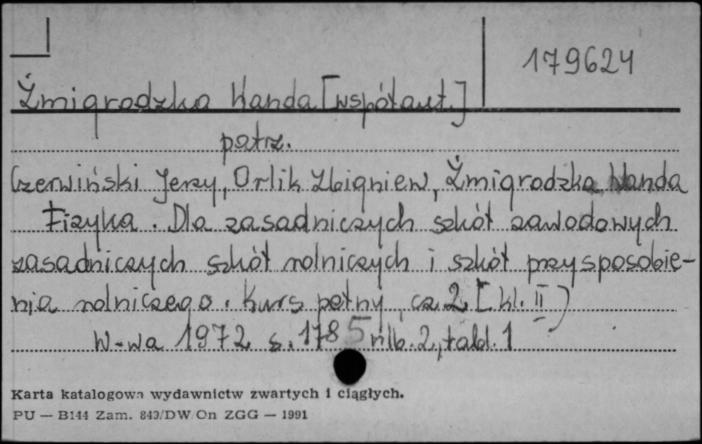 179624
Żmigrodzka Wanda [współaut.]
patrz.
Czerwiński Jerzy, Orlik Zbigniew, Żmigrodzka Wanda
Fizyka. Dla zasadniczych szkół zawodowych
zasadniczych szkół rolniczych i szkół przysposobie-
nia rolniczego. Kurs pełny, cz. 2 [kl. II)
W-wa 1972 s. 178 5 nlb. 2, tabl. 1
Karta katalogowa wydawnictw zwartych i ciągłych.
PU — B144 Zam. 840/DW/On ZGG — 1991